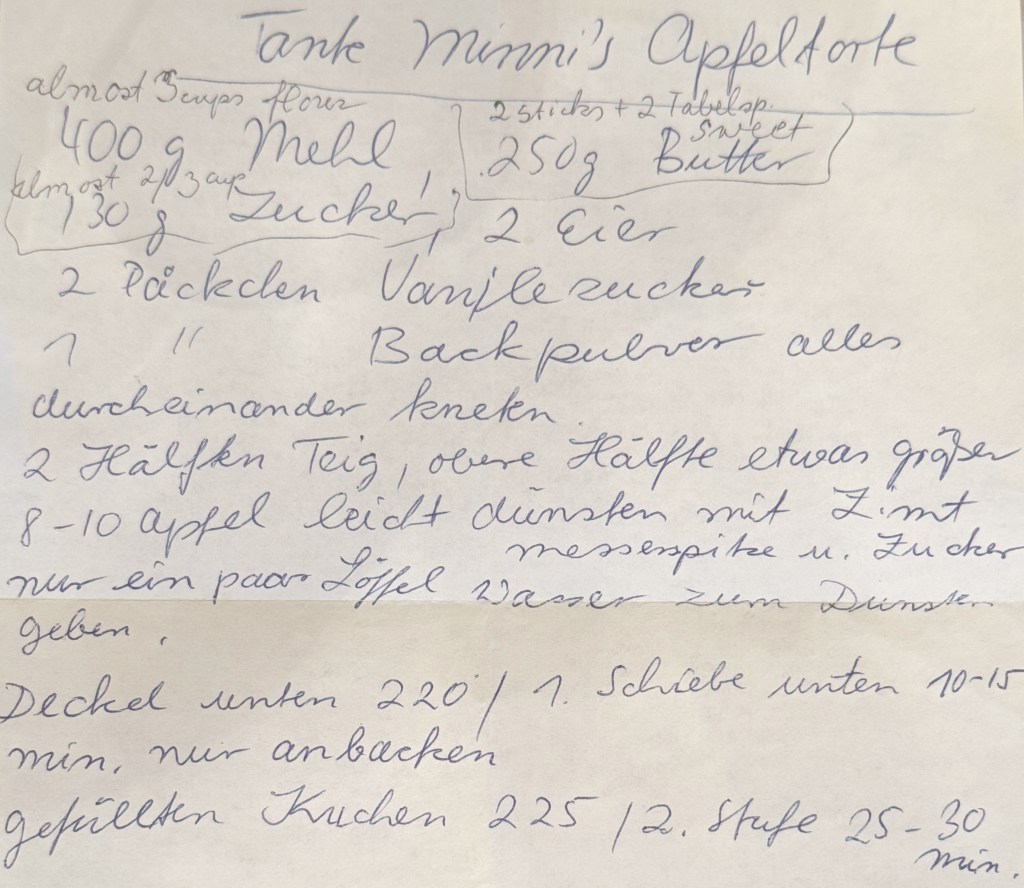 Tante Minni's Apfeltorte
almost 3 cups flour
2 sticks + 2 Tabelsp.
sweet
400 g Mehl 250g Butter
almost 2/3 cup
130 g Zucker 2 Eier
2 Päckchen Vanillezucker
1 " Backpulver alles
durcheinander kneten.
2 Hälften Teig, obere Hälfte etwas größer
8-10 Apfel leicht dünsten mit Zimt
messerspitze u. Zucker
nur ein paar Löffel Wasser zum Dünsten
geben.
Deckel unten 220 / 1. Schiebe unten 10-15
min. nur anbacken
gefüllten Kuchen 225 / 2. Stufe 25-30
min.